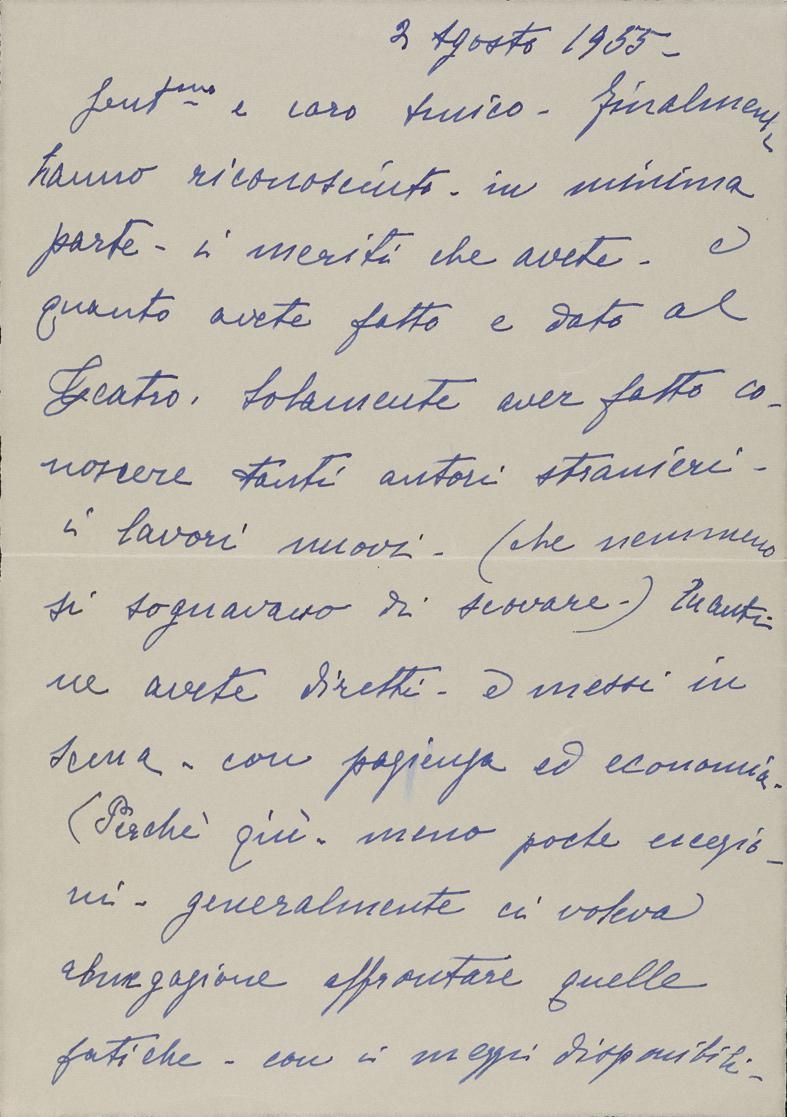 2 Agosto 1955-
Gent.mo e caro Amico - Finalmente
hanno riconosciuto - in minima
parte - i meriti che avete - e
quanto avete fatto e dato al
Teatro. Solamente aver fatto co-
noscere tanti autori stranieri -
i lavori nuovi - (che nemmeno
si sognavano di scovare -) Quanti
ne avete diretti - e messi in
scena - con pazienza ed economia -
(Perchè quì - meno poche ecezio-
ni - generalmente ci voleva
abnegazione affrontare quelle
fatiche - con i mezzi disponibili -